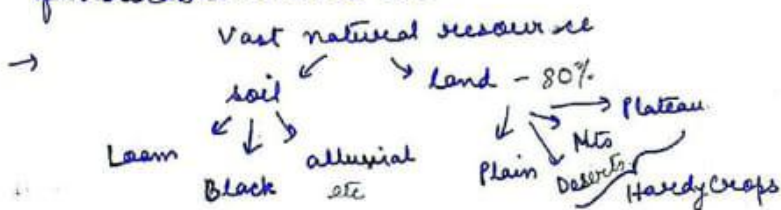 Vast natural resource
→ soil land - 80%
Loam Black alluvial etc
Plain Deserts Mts Plateau
Hardy Crops